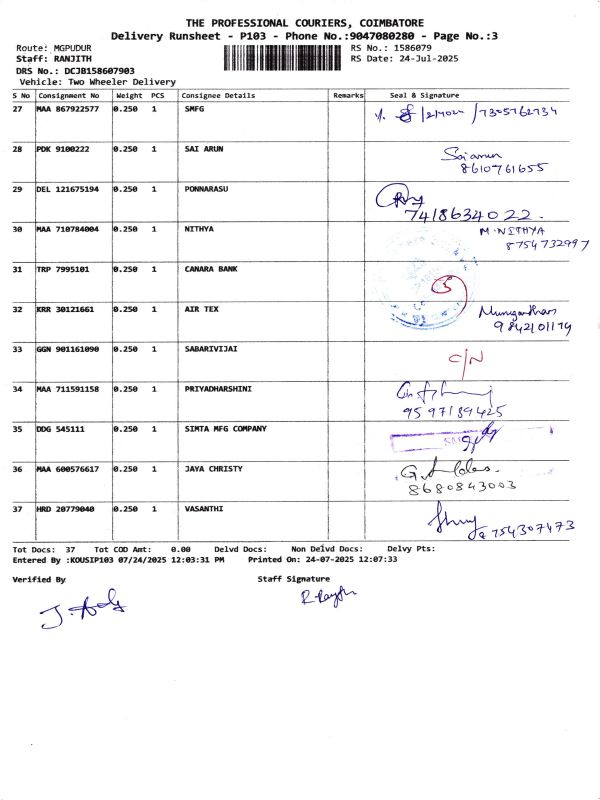 THE PROFESSIONAL COURIERS, COIMBATORE
Delivery Runsheet - P103 - Phone No.:9047080280 - Page No.:3
Route: MGPUDUR RS No.: 1586079
Staff: RANJITH RS Date: 24-Jul-2025
DRS No.: DCJB158607903
Vehicle: Two Wheeler Delivery
S No Consignment No Weight PCS Consignee Details Remarks Seal & Signature
27 MAA 867922577 0.250 1 SMFG 7305762734
28 PDK 9100222 0.250 1 SAI ARUN Sai arun
8610761655
29 DEL 121675194 0.250 1 PONNARASU
7418634022.
30 MAA 710784004 0.250 1 NITHYA M.NITHYA
8754732997
31 TRP 7995101 0.250 1 CANARA BANK
32 KRR 30121661 0.250 1 AIR TEX
9842101174
33 GGN 901161090 0.250 1 SABARIVIJAI C/N
34 MAA 711591158 0.250 1 PRIYADHARSHINI
9597189425
35 DDG 545111 0.250 1 SIMTA MFG COMPANY
36 MAA 600576617 0.250 1 JAYA CHRISTY
8680843003
37 HRD 20779040 0.250 1 VASANTHI
9754307473
Tot Docs: 37 Tot COD Amt: 0.00 Delvd Docs: Non Delvd Docs: Delvy Pts:
Entered By :KOUSIP103 07/24/2025 12:03:31 PM Printed On: 24-07-2025 12:07:33
Verified By Staff Signature